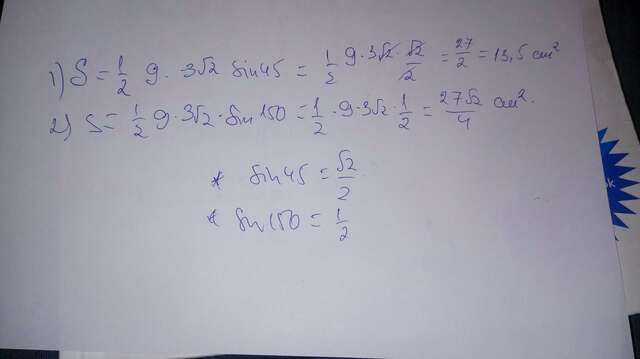 1) S = 1/2 9 · 3√2 sin 45 = 1/2 9 · 3√2 · √2/2 = 27/2 = 13,5 cm²
2) S = 1/2 9 · 3√2 · sin 150 = 1/2 · 9 · 3√2 · 1/2 = 27√2/4 cm².
* sin 45 = √2/2
* sin 150 = 1/2